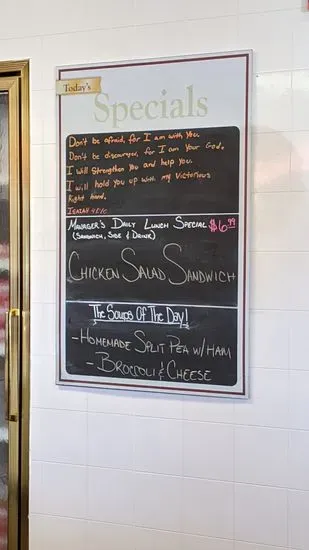 Today's
Specials
Don't be afraid, for I am with you.
Don't be discouraged, for I am your God.
I will strengthen you and help you.
I will hold you up with my victorious
Right hand.
ISAIAH 41:10
MANAGER'S DAILY LUNCH SPECIAL $6.99
(SANDWICH, SIDE & DRINK)
CHICKEN SALAD SANDWICH
The Soups Of The Day!
-HOMEMADE SPLIT PEA W/HAM
-BROCCOLI & CHEESE